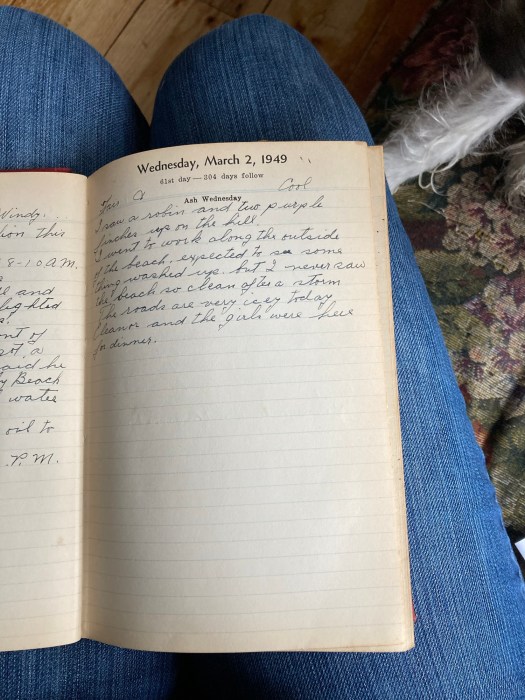 Windy.
tion this
8-10 A.M.
and
lighted
nt of
said he
y Beach
water
oil to
P.M.
Wednesday, March 2, 1949
61st day—304 days follow
Cool
Ash Wednesday
I saw a robin and two purple
finches up on the hill
I went to work along the outside
of the beach, expected to see some
thing washed up but I never saw
the beach so clean after a storm
The roads are very icey today
Eleanor and the girls were here
for dinner.